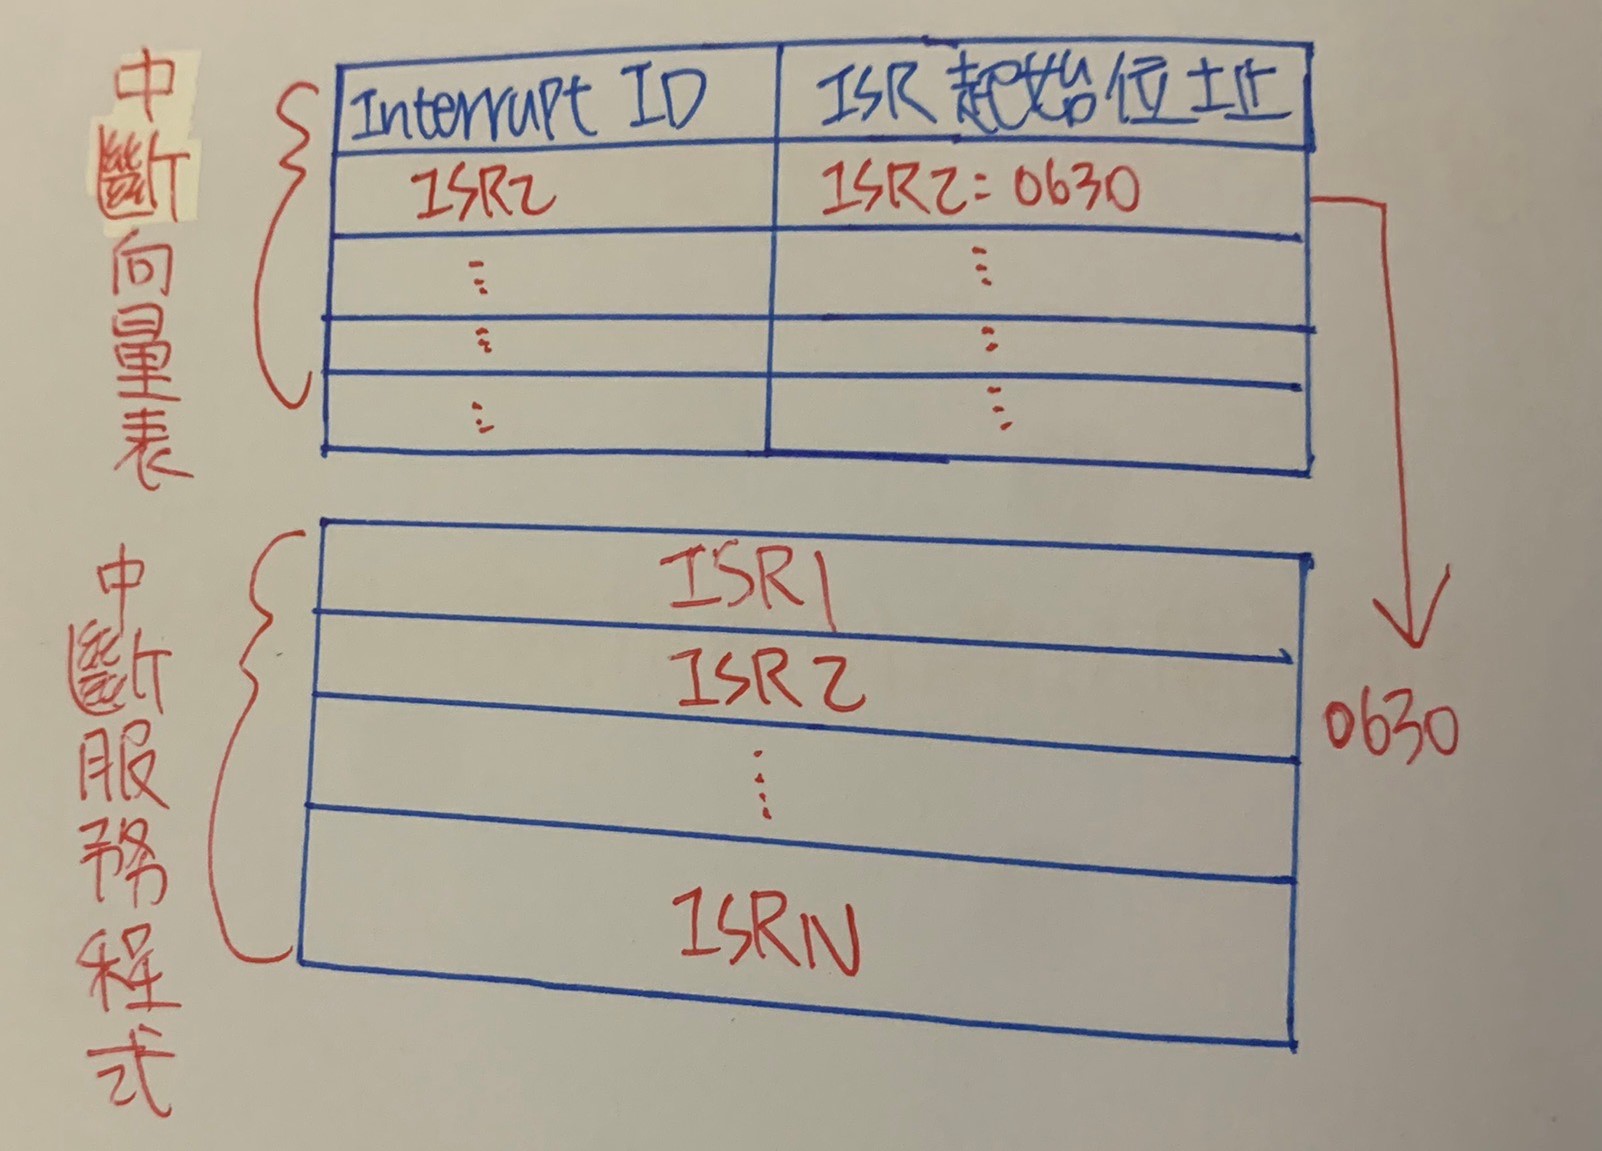 中斷向量表
Interrupt ID ISR 起始位址
ISR2 ISR2: 0630
中斷服務程式
ISR1
ISR2
0630
ISRN